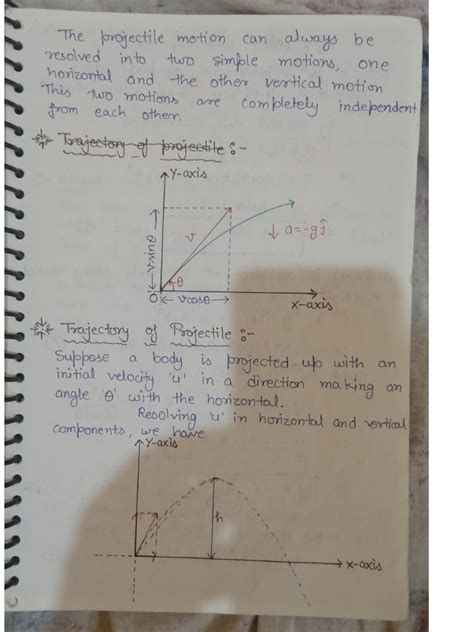 The projectile motion can always be
resolved into two simple motions, one
horizontal and the other vertical motion
This two motions are completely independent
from each other.
Trajectory of projectile :-
Y-axis
v sinθ
v
↓ a=-gĵ
θ
O
vcosθ
x-axis
Trajectory of Projectile :-
Suppose a body is projected up with an
initial velocity 'u' in a direction making an
angle 'θ' with the horizontal.
Resolving 'u' in horizontal and vertical
components, we have
Y-axis
h
x-axis